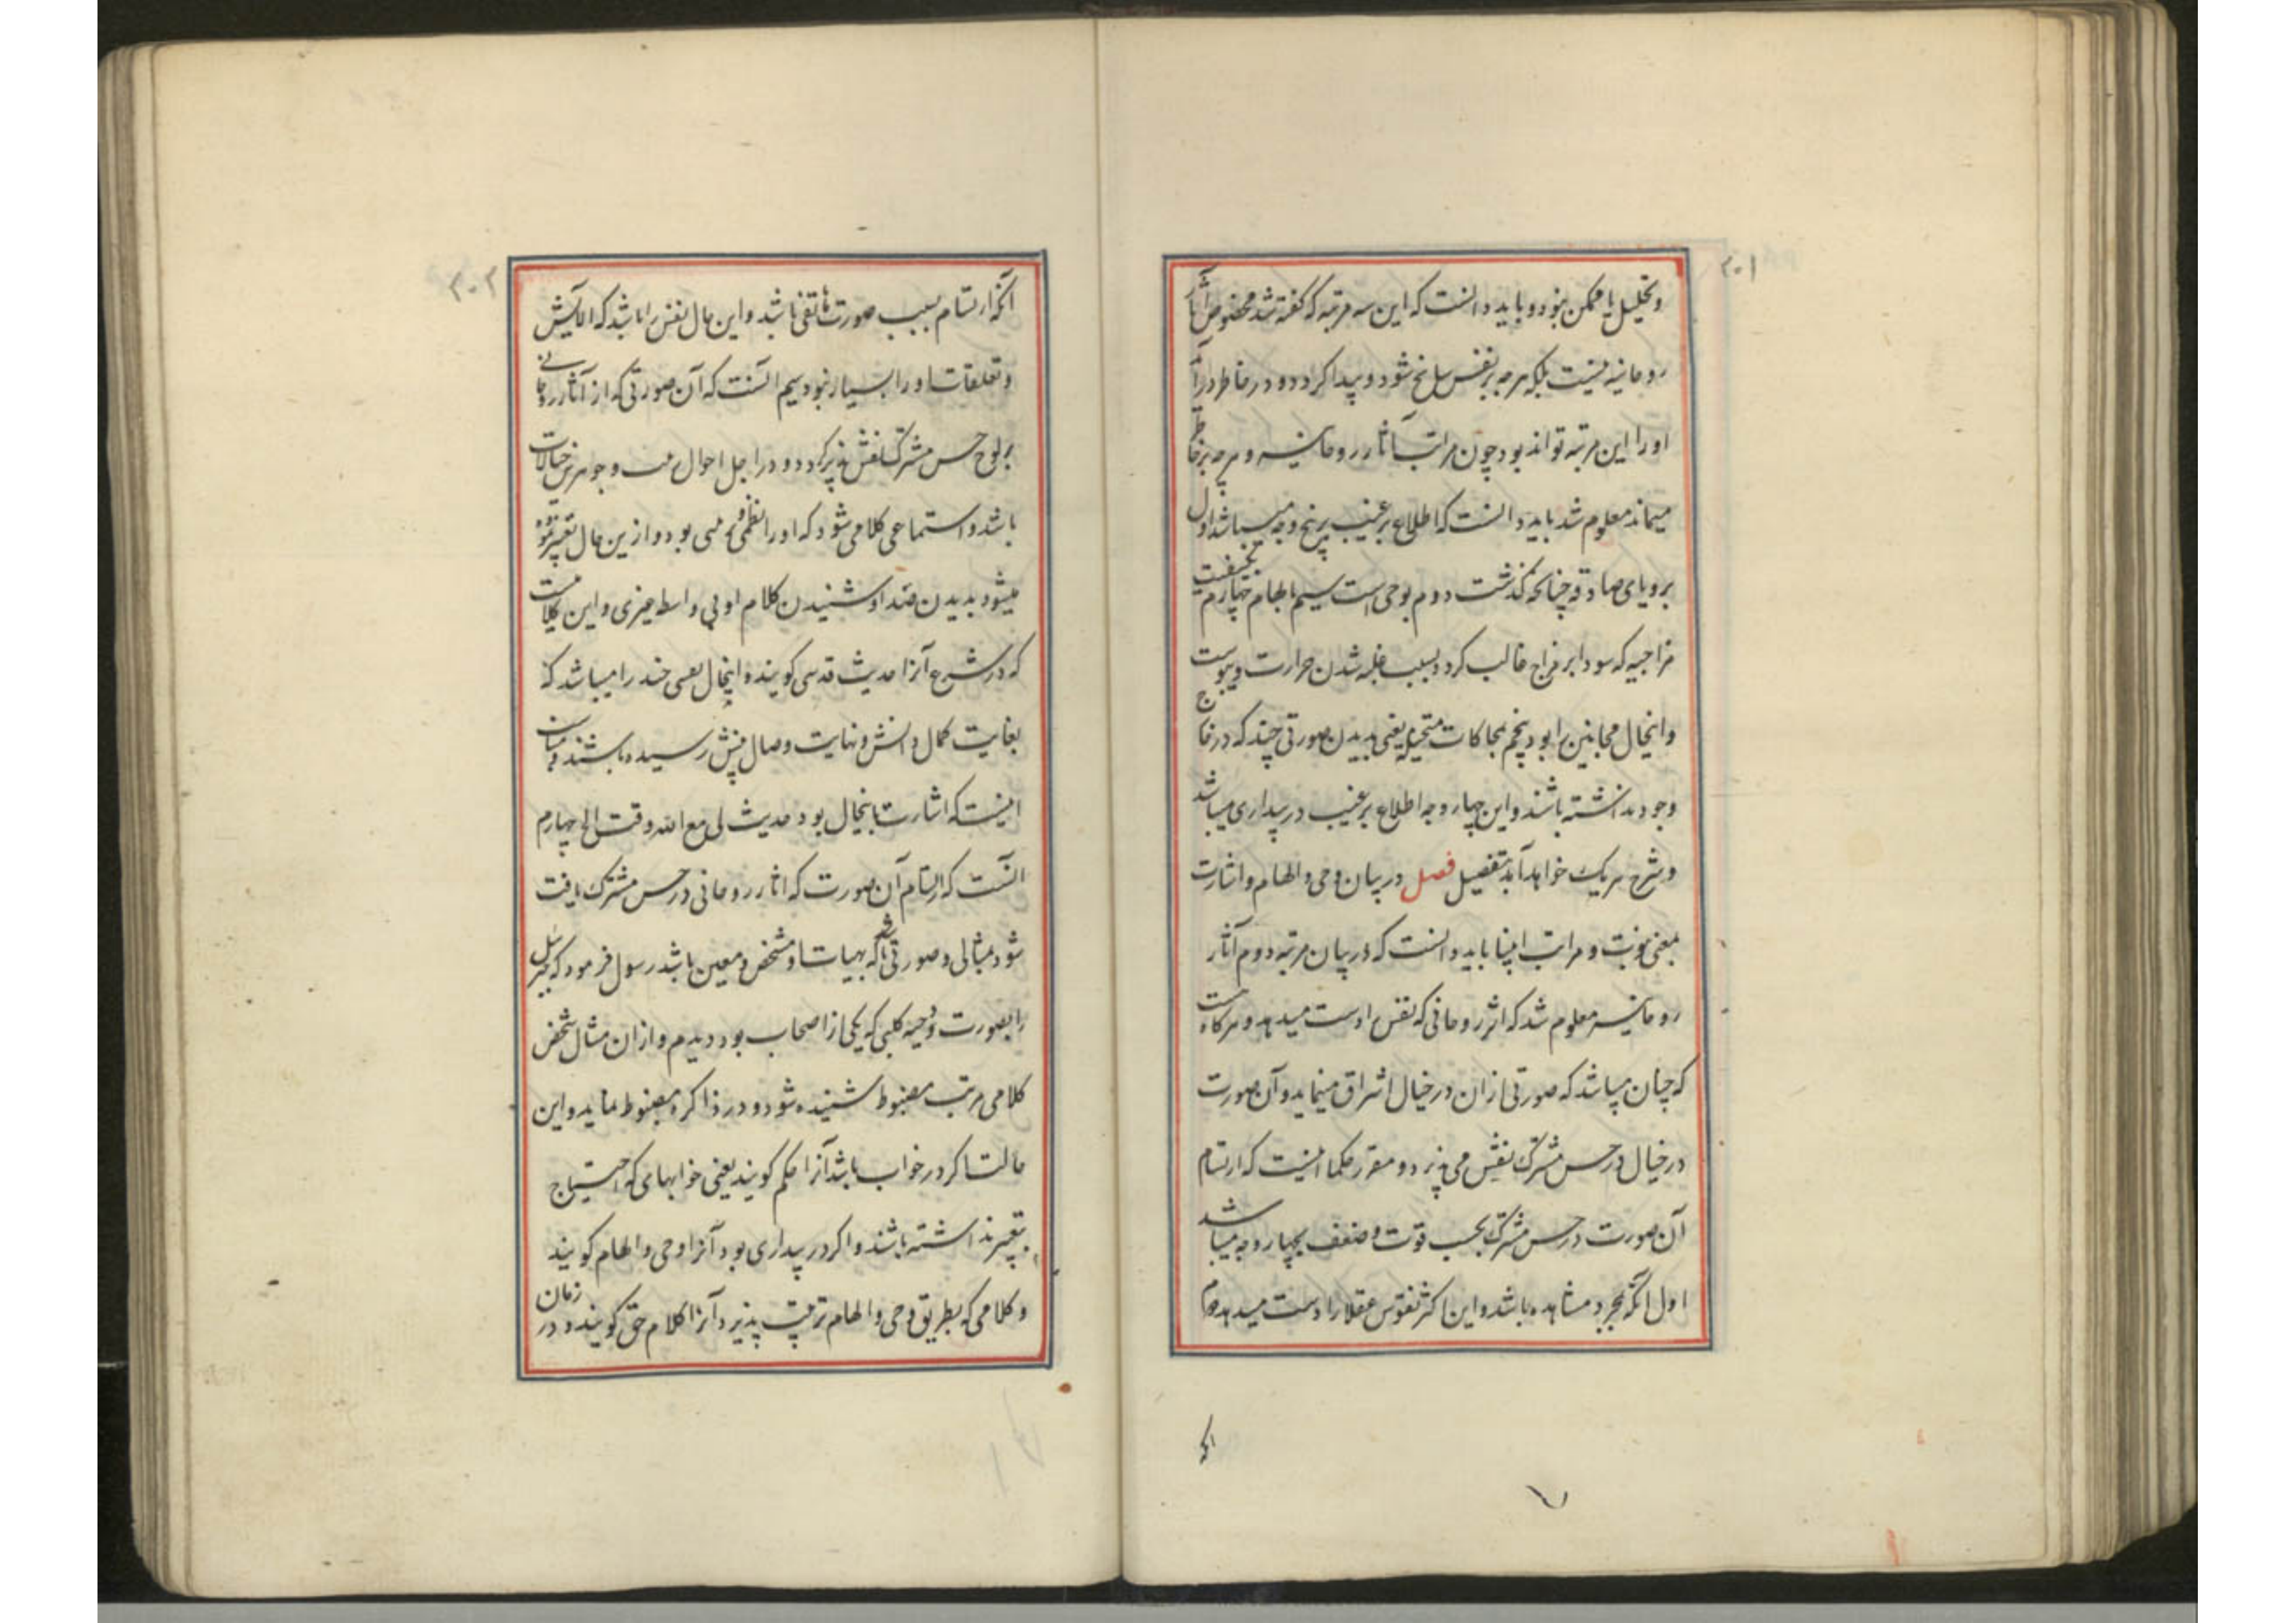 ۳۰۱
و تحلیل یا ممکن نبود و باید دانست که این سه مرتبه که گفته شد مخصوص آثار
روحانیه نیست بلکه هرچه بر نفس سانح شود و پیدا گردد و در خاطر درآید
او را این مرتبه تواند بود چون مراتب آثار روحانیه و هرچه بر خاطر
میماند معلوم شد باید دانست که اطلاع بر غیب بر پنج وجه میباشد اول
برویای صادقه چنانکه گذشت دوم بوحی است سیم بالهام چهارم بخبیثت
مزاجیه که سودا بر مزاج غالب گردد بسبب غلبه شدن حرارت و یبوست
و اینحال مجانین را بود پنجم بمحاکات متخیله یعنی بدیدن صورتی چند که در خارج
وجود نداشته باشند و این چهار وجه اطلاع بر غیب در بیداری میباشد
و شرح هر یک خواهد آمد بتفصیل فصل در بیان وحی و الهام و اشارت
بمعنی نبوت و مراتب انبیا باید دانست که در بیان مرتبه دوم آثار
روحانیه معلوم شد که اثر روحانی که نفس را دست میدهد و هر گاه هست
که چنان میباشد که صورتی از آن در خیال اشراق مینماید و آن صورت
در خیال در حس مشترک نقش می پذیرد و مقرر حکما اینست که ارتسام
آن صورت در حس مشترک بحسب قوت و ضعف بچهار وجه میباشد
اول آنکه بمجرد مشاهده باشد و این اکثر نفوس عقلا را دست میدهد دوم
آنکه
۳۰۲
آنکه ارتسام بسبب صورت هاتفی باشد و این حال نفس را باشد که آلایش
و تعلقات او را بسیار نبود سیم آنست که آن صورتی که از آثار روحانی
بر لوح حس مشترک نقش پذیر گردد و در اجل احوال هیئت و جوهر خیالات
باشد و استماعی کلامی شود که او را نظمی و نحسی بود و از این حال تعبیر نموده
میشود بدیدن خدا و شنیدن کلام او بی واسطه چیزی و این کلامیست
که در شرع آنرا حدیث قدسی گویند و اینحال بعضی چند را میباشد که
بغایت کمال دانش و نهایت وصال بینش رسیده باشند و میان
اینست که اشارت باینحال بود حدیث لی مع الله وقت الخ چهارم
آنست که ارتسام آن صورت که اثار روحانی در حس مشترک یافت
شود مثالی و صورتی باشد که بهیات او مشخص و معین باشد رسول فرمود که جبرئیل
را بصورت دحیه کلبی که یکی از اصحاب بود دیدم و از ان مثال شخص
کلامی مرتب مضبوط شنیده شود و در ذاکره مضبوط ماند و این
حالت اگر در خواب باشد آنرا حکم گویند یعنی خوابهای که احتیاج
بتعبیر نداشته باشند و اگر در بیداری بود آنرا وحی و الهام گویند
و کلامی که بطریق وحی و الهام ترتیب پذیرد آنرا کلام حق گویند و در زمان